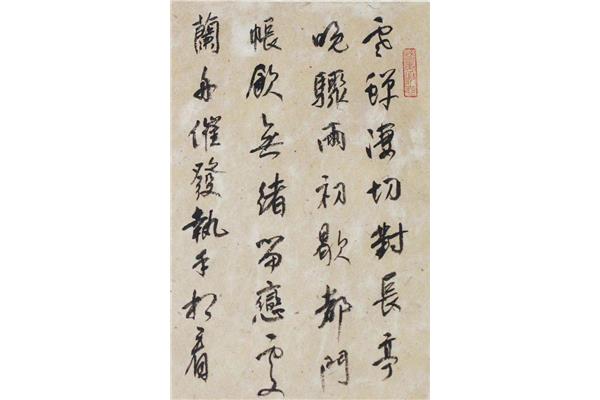 寒蟬淒切對長亭
晚驟雨初歇都門
帳飲無緒留戀處
蘭舟催發執手相看